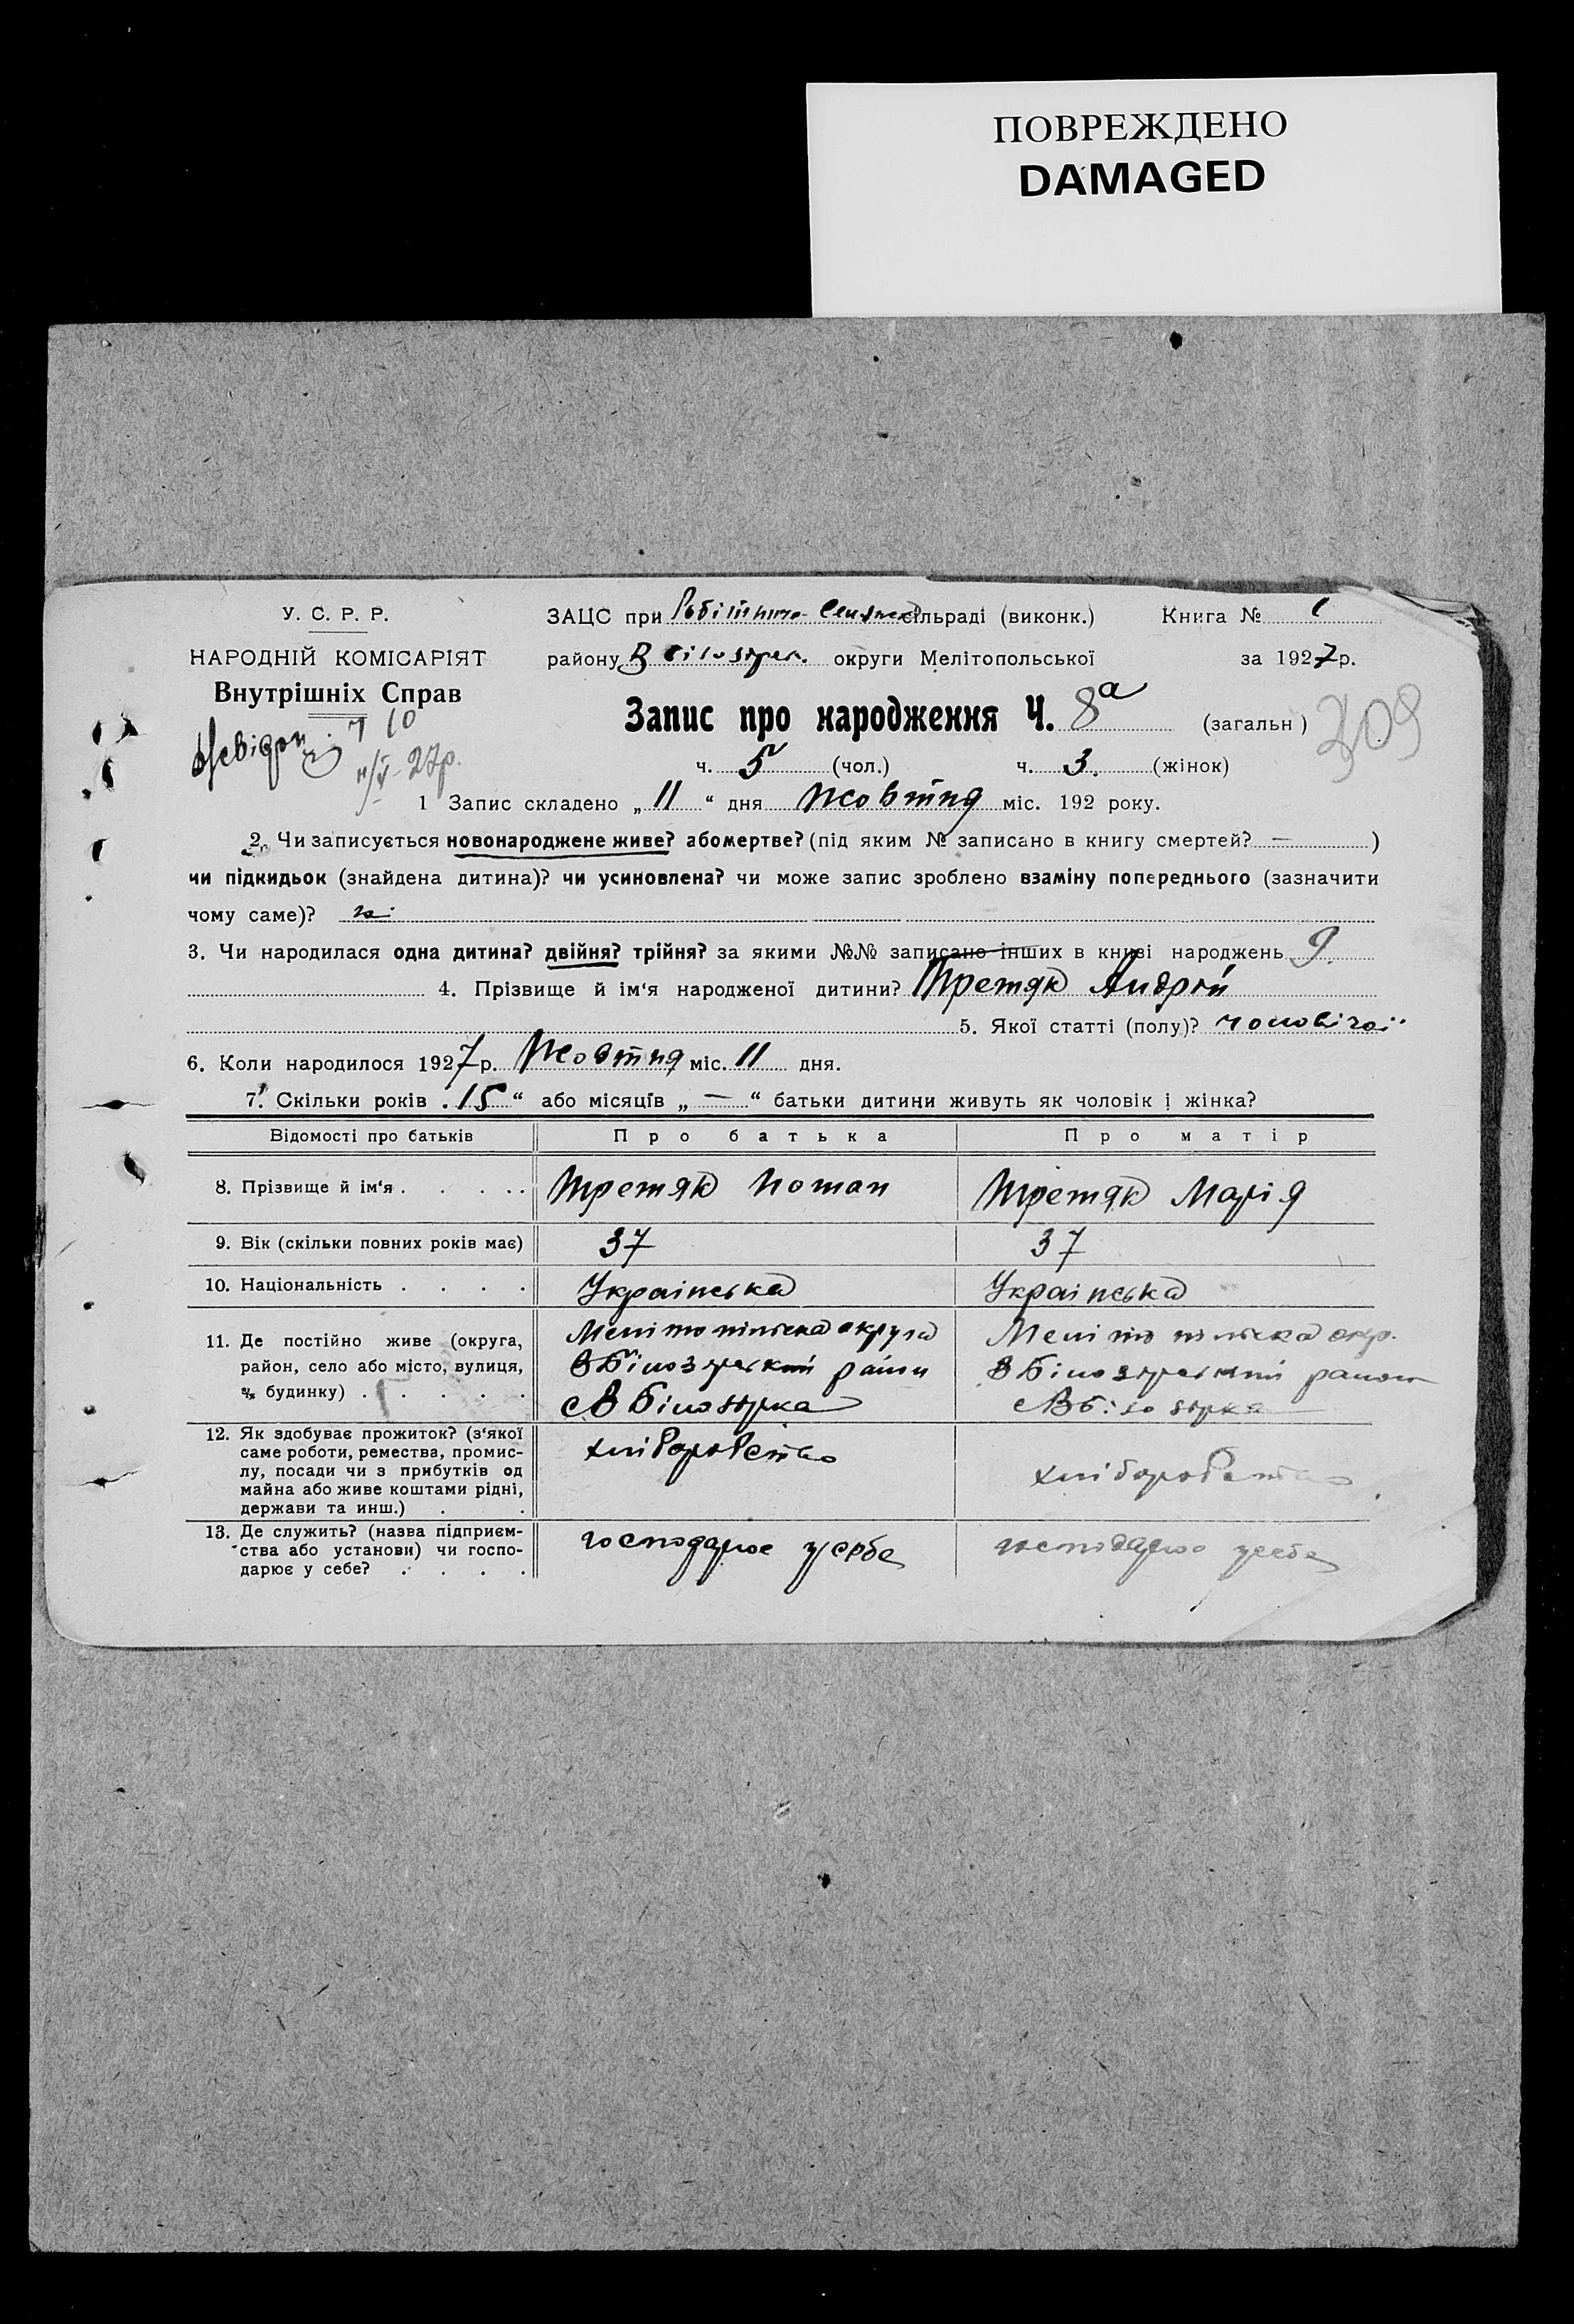 ПОВРЕЖДЕНО
DAMAGED
У. С. Р. Р.
НАРОДНІЙ КОМІСАРІЯТ
Внутрішніх Справ
ЗАЦС при Робітничо-Селянск сільраді (виконк.) Книга № 1
району В Білозерк. округи Мелітопольської за 1927р.
Запис про народження Ч. 8а (загальн)
309
7 10
27р.
ч. 5 (чол.) ч. 3. (жінок)
1 Запис складено „11“ дня Жовтня міс. 192 року.
2. Чи записується новонароджене живе? або мертве? (під яким № записано в книгу смертей? — )
чи підкидьок (знайдена дитина)? чи усиновлена? чи може запис зроблено взаміну попереднього (зазначити
чому саме)?
3. Чи народилася одна дитина? двійня? трійня? за якими №№ записано інших в книзі народжень 9.
4. Прізвище й ім‘я народженої дитини? Третяк Андрій
5. Якої статті (полу)? чоловічої
6. Коли народилося 1927р. Жовтня міс. 11 дня.
7. Скільки років „15“ або місяців „—“ батьки дитини живуть як чоловік і жінка?
Відомості про батьків Про батька Про матір
8. Прізвище й ім‘я . . . . . Третяк Потап Третяк Марія
9. Вік (скільки повних років має) 37 37
10. Національність . . . . Українська Українська
11. Де постійно живе (округа, Мелітопільска округа Мелітопільска окр.
район, село або місто, вулиця, В Білозерський район В Білозерський район
№ будинку) . . . . . . с В Білозерка с В Білозерка
12. Як здобуває прожиток? (з‘якої хліборобство хліборобство
саме роботи, ремества, промис-
лу, посади чи з прибутків од
майна або живе коштами рідні,
держави та инш.) . .
13. Де служить? (назва підприєм- господарює у себе господарює у себе
ства або установи) чи госпо-
дарює у себе? . . . .